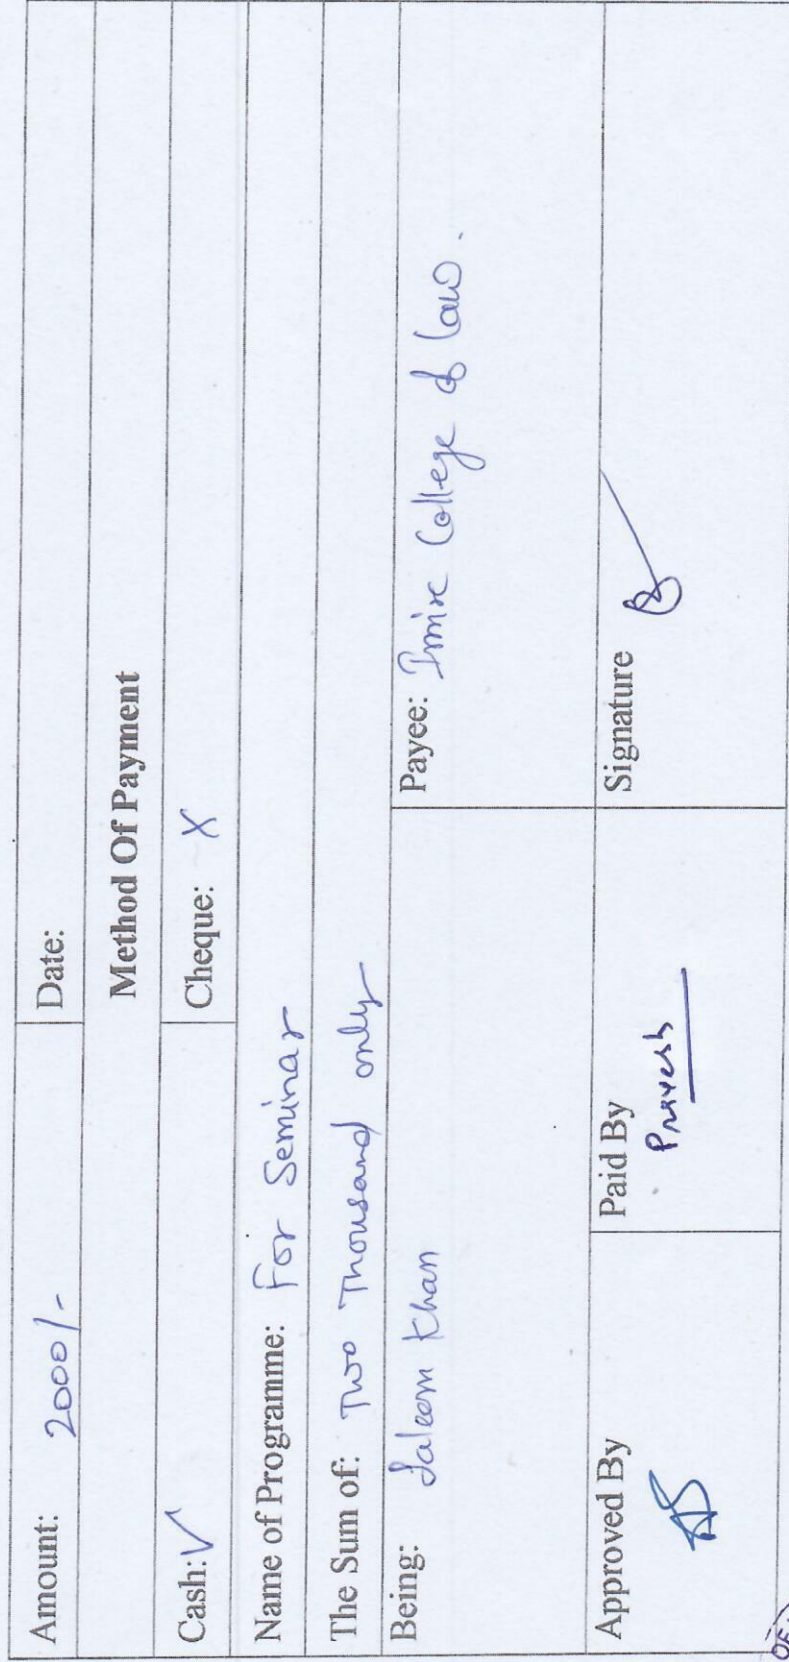 Amount: 2000/- Date:
Method Of Payment
Cash: ✓ Cheque: X
Name of Programme: For Seminar
The Sum of: Two Thousand only
Being: Saleem Khan Payee: College of Law.
Approved By Paid By Signature
Pravesh